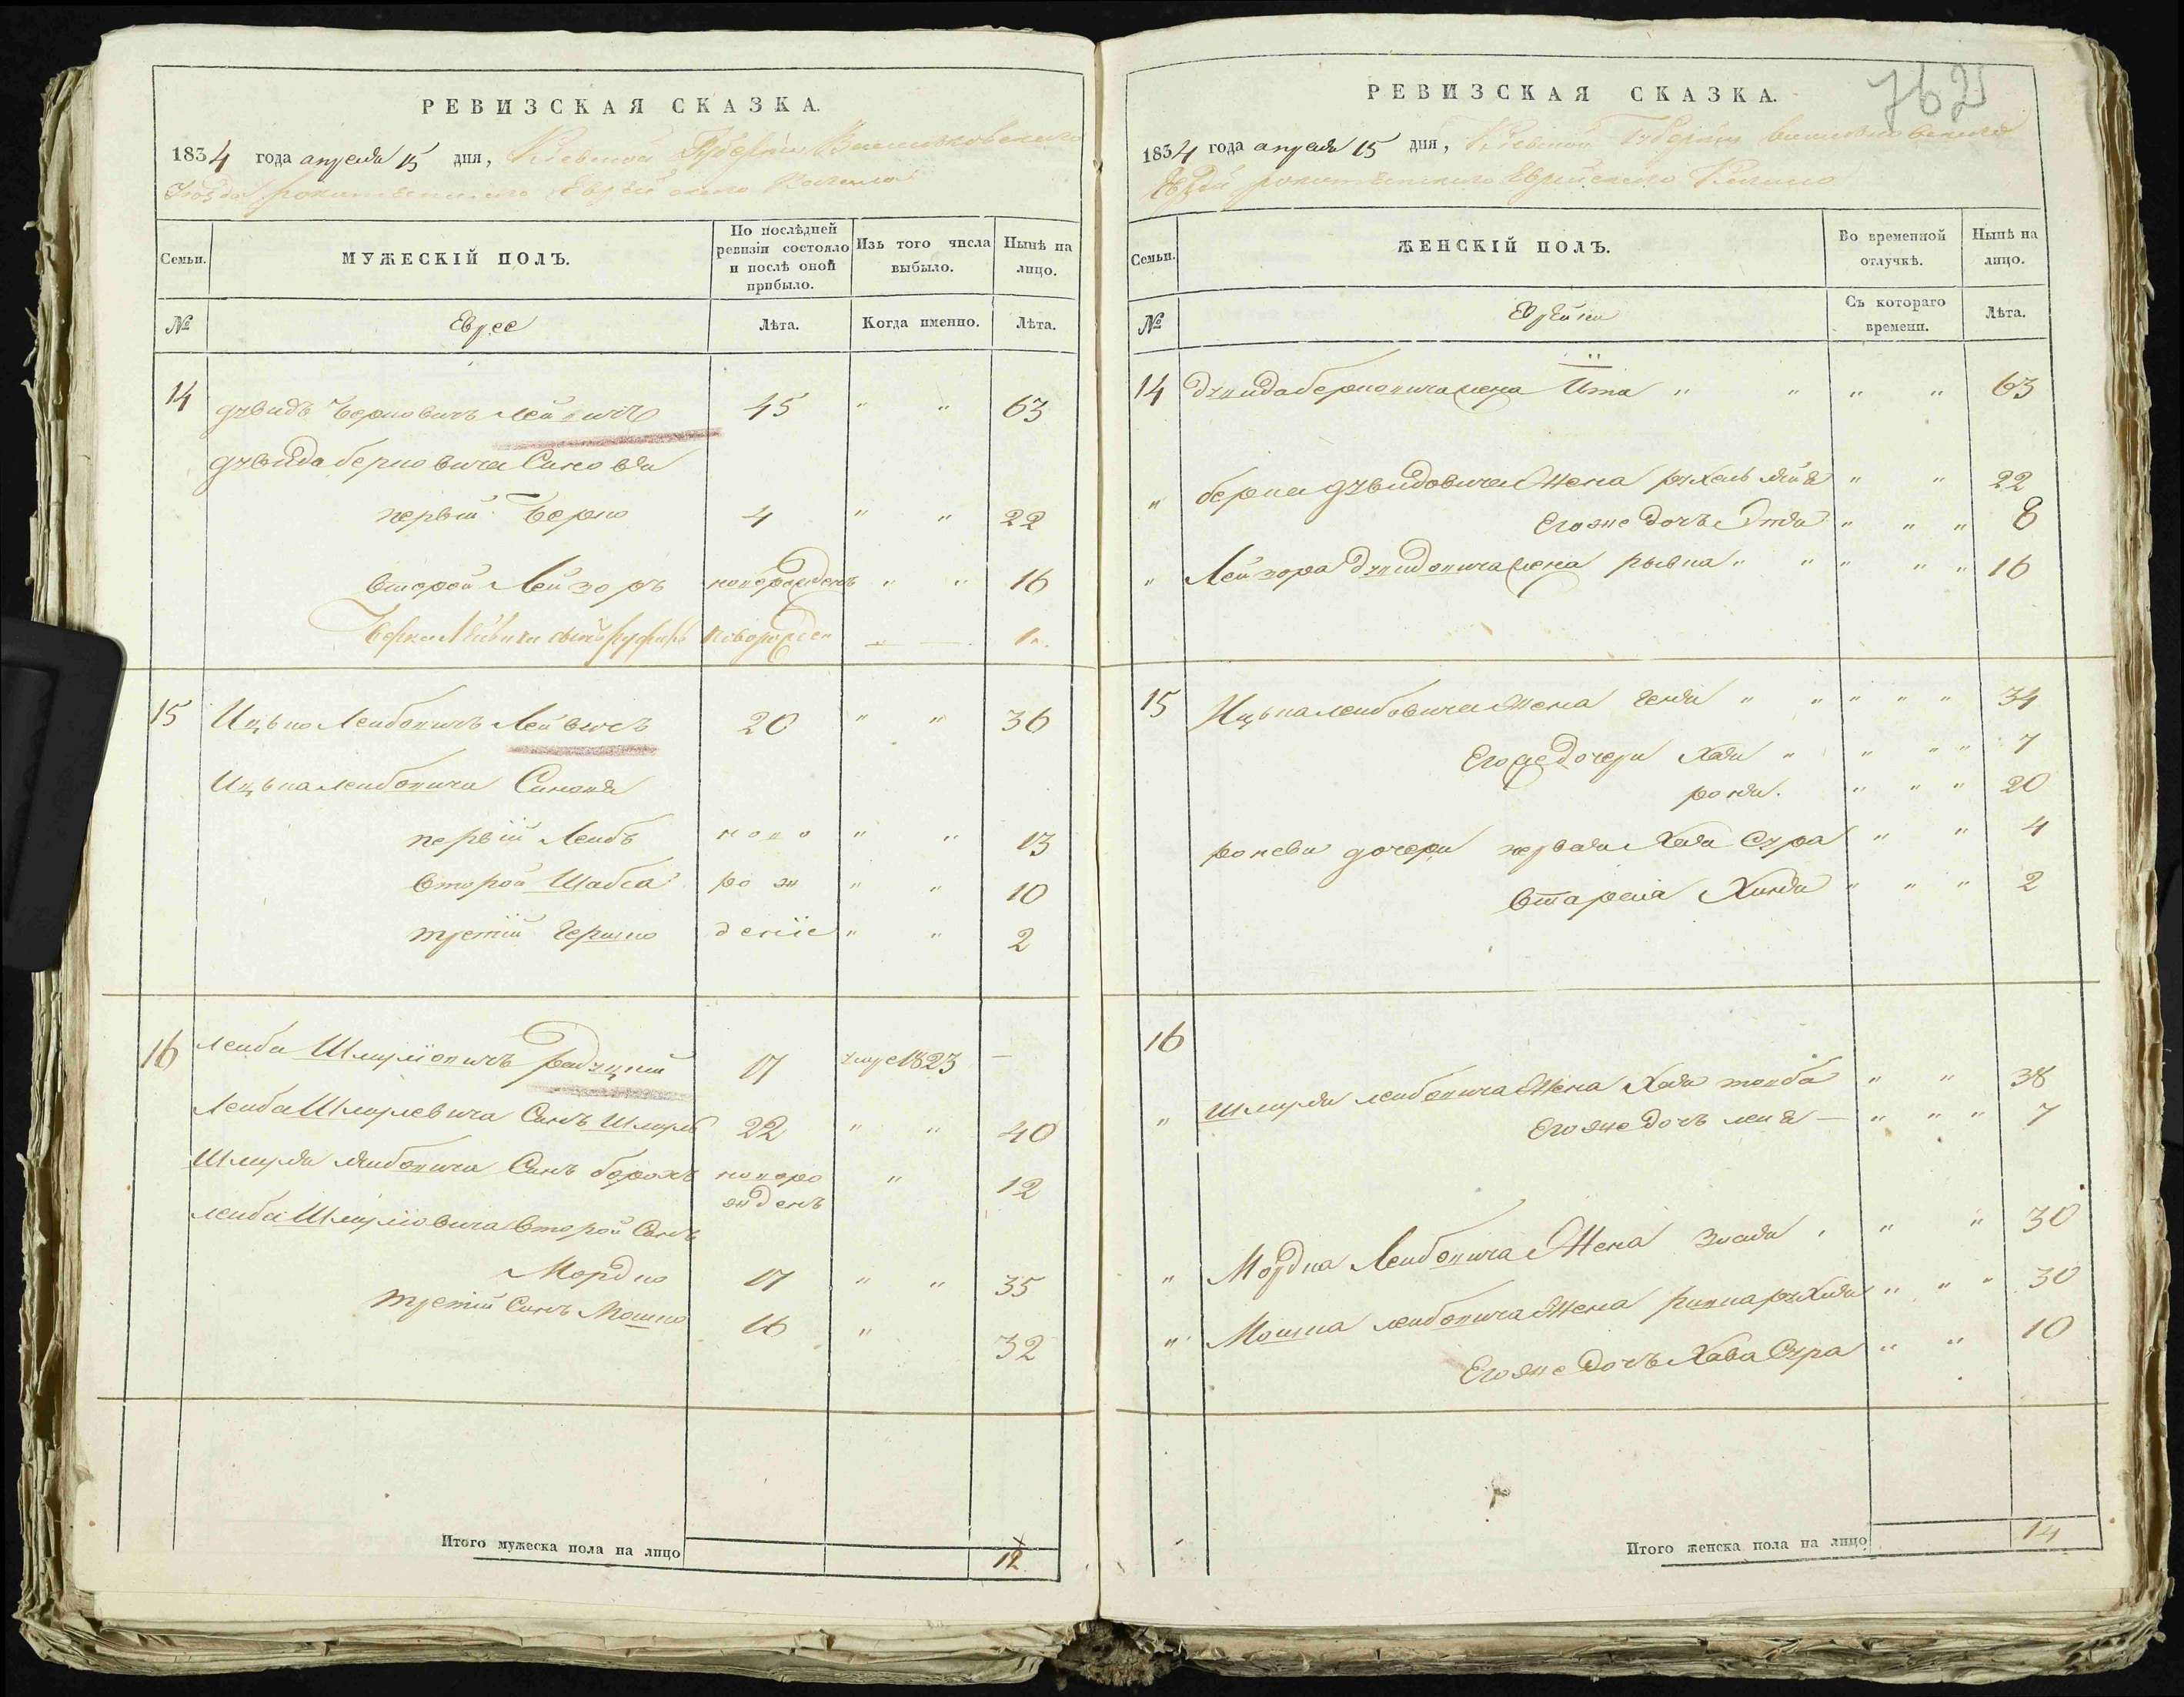 РЕВИЗСКАЯ СКАЗКА.
1834 года апреля 15 дня, Кіевской Губерніи Васильковского
Уезда рокитянского Еврейского Кагала
Семьи.
МУЖЕСКІЙ ПОЛЪ.
По послѣдней ревизіи состояло и послѣ оной прибыло.
Изъ того числа выбыло.
Нынѣ на лицо.
№
Еврее
Лѣта.
Когда именно.
Лѣта.
14 Дувидъ Берковичъ 45 " " 63
Дувида берковича Синовя
первій Берко 4 " " 22
второй Лейзоръ новорожденъ " " 16
новорожден 1
15 Ицько Лейбовичъ 20 " " 36
Ицька лейбовича Синовя
первій Лейбъ ново " " 13
второй Шабса рож " " 10
третій Гершко деніе " " 2
16 Лейба Шмулiовичъ 17 умре 1823 —
Лейба Шмулевича Синъ Шмуль 22 " " 40
Шмуля лейбовича Синъ борохъ новоро 12
жденъ
лейба Шмулiовича второй Синъ
Мордко 17 " " 35
третій Синъ Мошко 16 " 32
Итого мужеска пола на лицо 12
РЕВИЗСКАЯ СКАЗКА.
762
1834 года апреля 15 дня, Кіевской Губерніи Васильковского
рокитянского Еврейского Кагала
Семьи.
ЖЕНСКІЙ ПОЛЪ.
Во временной отлучкѣ.
Нынѣ на лицо.
№
Еврейки
Съ котораго времени.
Лѣта.
14 Дувида берковича жена Ита " " " " 63
" берка дувидовича жена рухль лея " " 22
Его же дочь Этля " " " 8
" Лейзора дувидовича жена рывка " " " " " 16
15 Ицька лейбовича жена Геня " " " " " 34
Его же дочери Хая " " " " 7
роня. " " " 20
дочери первая Хая Сура " " 4
вторая Хиня " " " 2
16
" Шмуля лейбовича жена Хая тойба " " 38
Его же дочь лея — " " " 7
" Мордка Лейбовича жена Зисля " " 30
" Мошка лейбовича жена " " " 30
Его же дочь Хава Сура " " 10
Итого женска пола на лицо 14